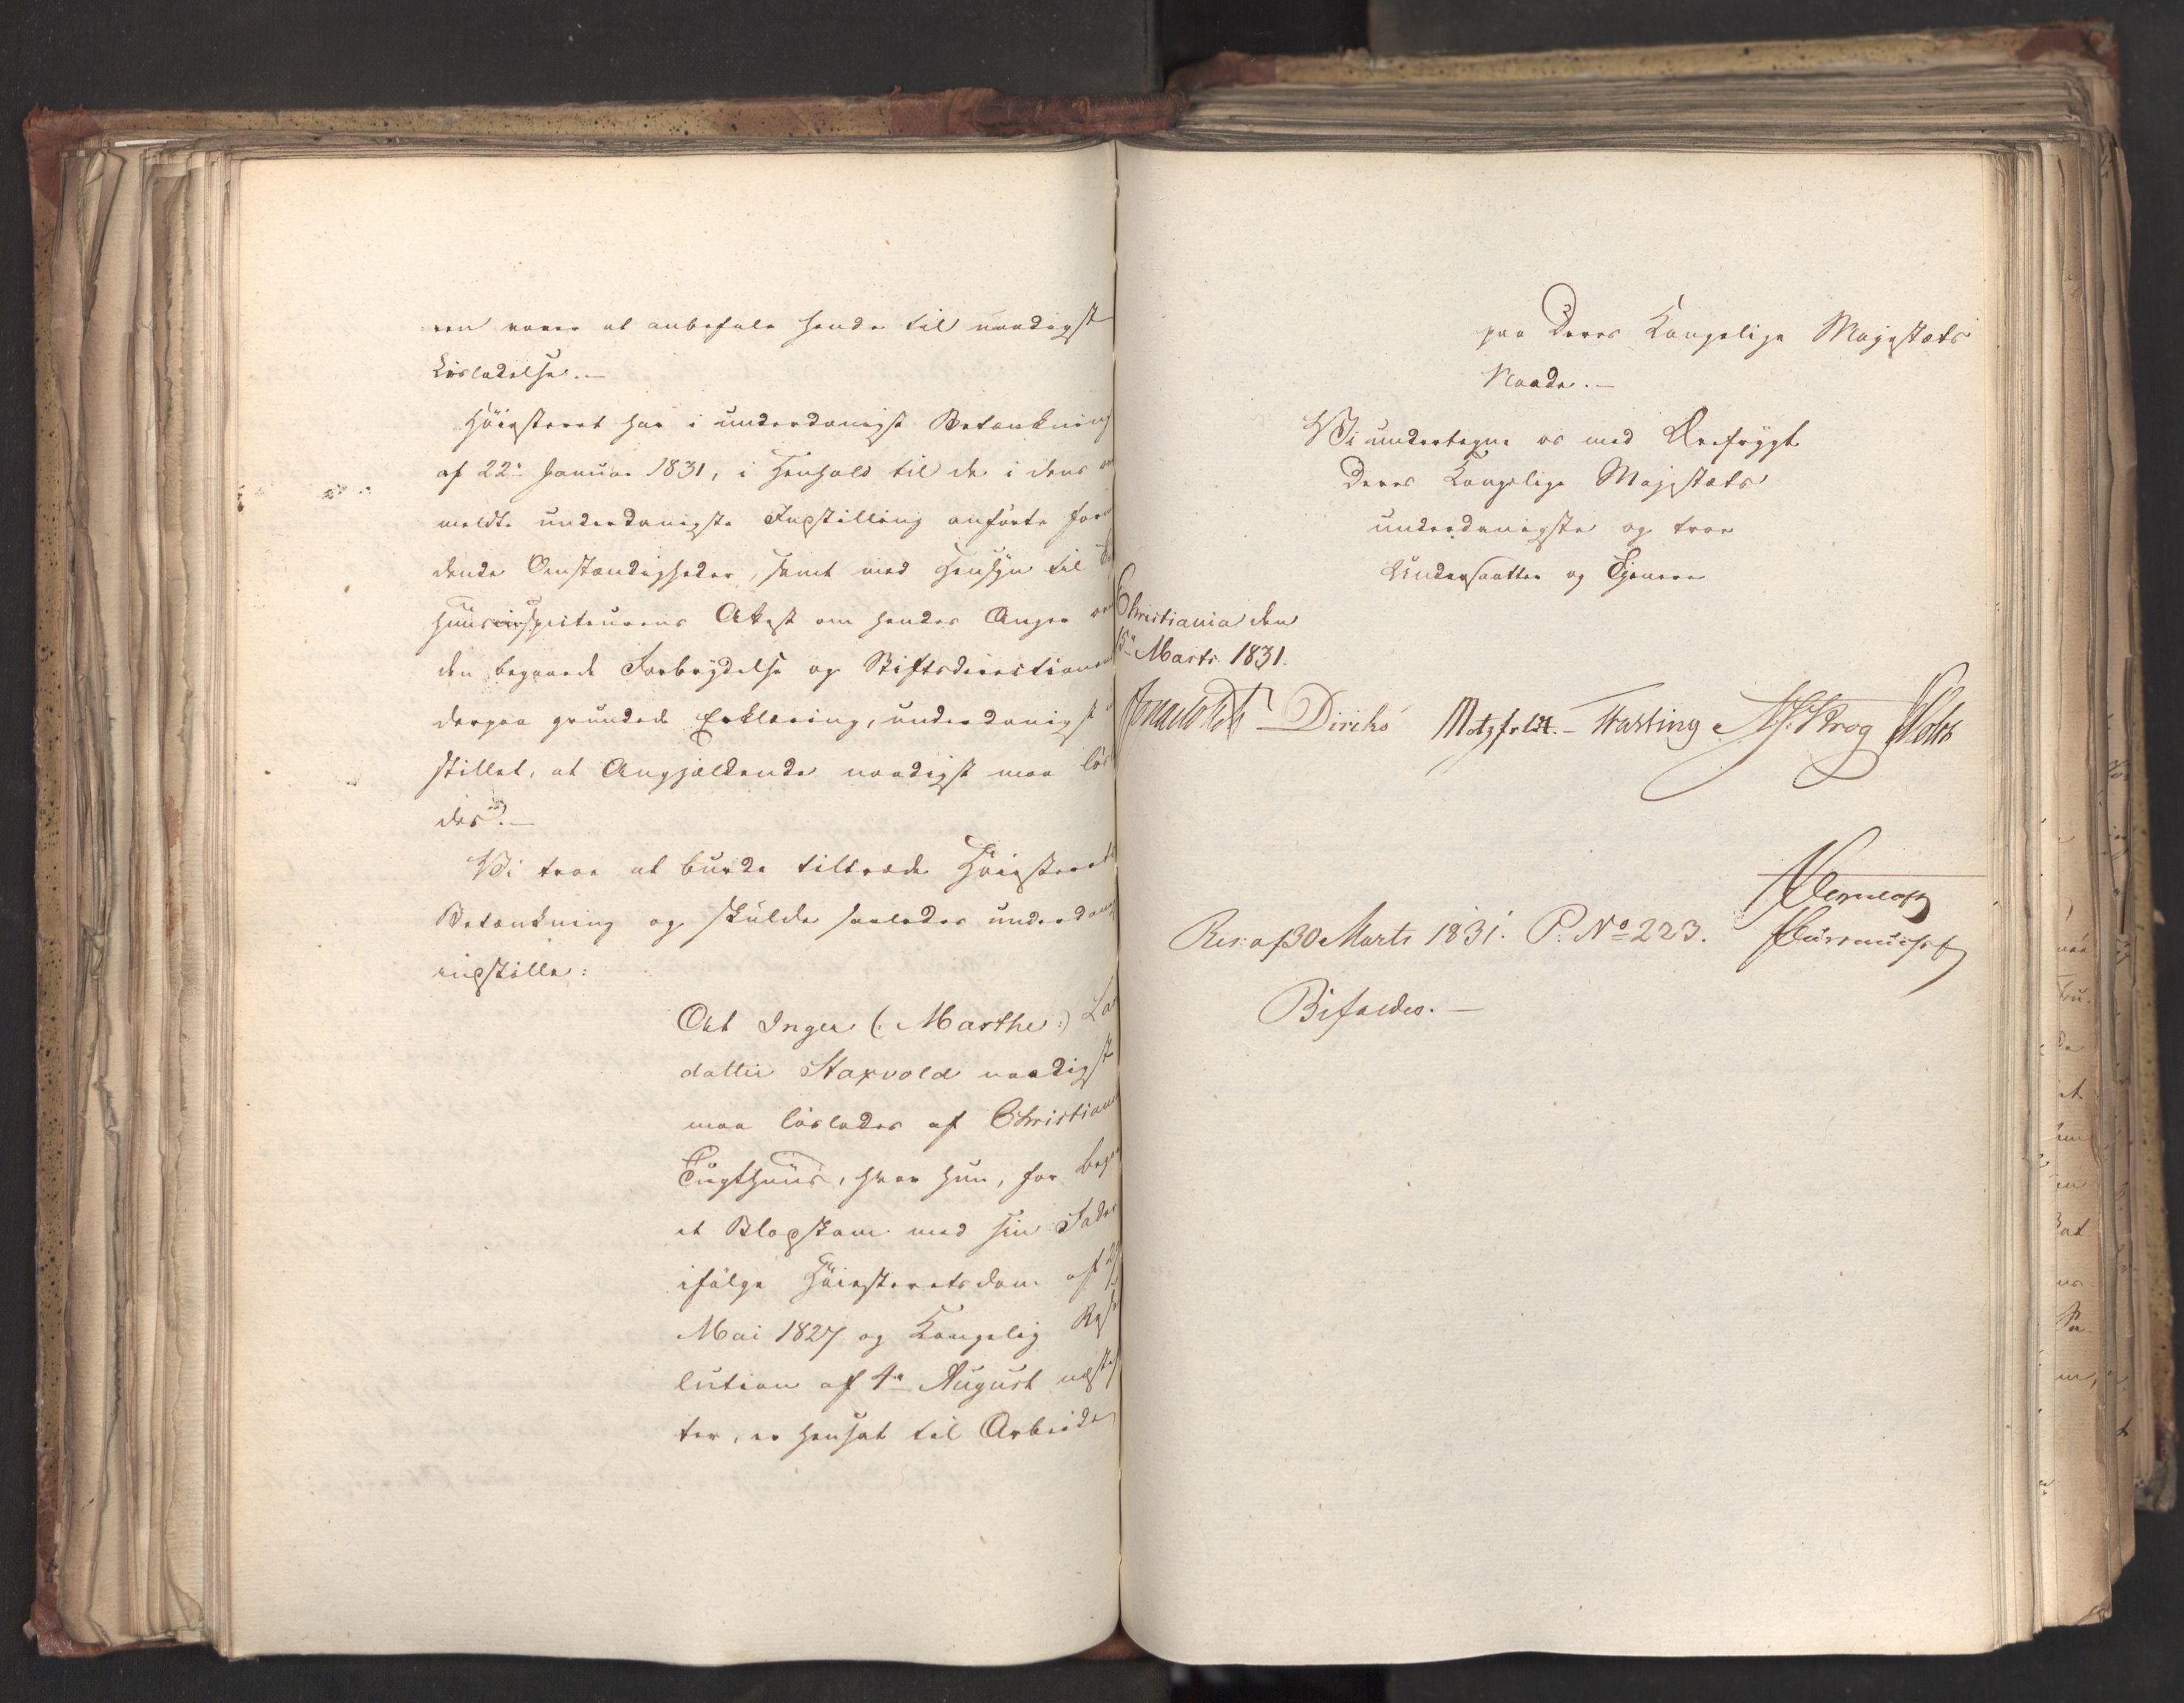 ren vover at anbefale hende til naadigst
Løsladelse.—
Høiesteret har i underdanigst Betænkning
af 22de Januar 1831, i Henhold til de i dens
meldte underdanigste Indstilling anførte
dende Omstændigheder, samt med Hensyn til
huusinspecteurens Attest om hendes Anger
den begaaede Forbrydelse og Stiftsdirectionens
derpaa grundede Erklæring, underdanigst
stillet, at Angjældende naadigst maa løs
des.—
Vi troe at burde tiltræde Høiesterets
Betænkning og skulde saaledes underdanigst
indstille:
At Inger (: Marthe :) Lar
datter Starvold naadigst
maa løslades af Christiania
Tugthuus, hvor hun, for begaa
et Blodskam med sin Fader
ifølge Høiesteretsdom af 29
Mai 1827 og Kongelig Reso
lution af 4de August næstef
ter, er hensat til Arbeide
paa Deres Kongelige Majestæts
Naade.—
Vi undertegne os med Ærefrygt
Deres Kongelige Majestæts
underdanigste og troe
Undersaatter og Tjenere
Christiania den
15de Marts 1831.
Diriks Motzfeldt.— Fasting Krog Holst
Res: af 30 Marts 1831. P: No 223.
Bifaldes.—